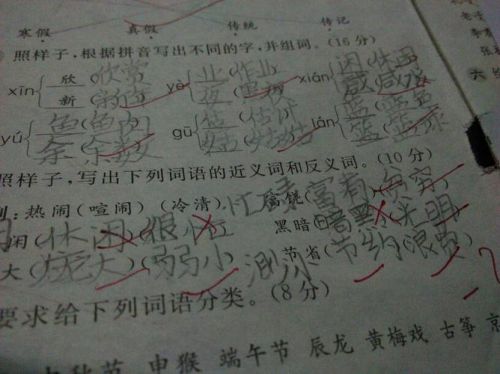 寒假 真假 传统 传记
照样子,根据拼音写出不同的字,并组词。(16分)
xīn 欣(欣赏) yè 业(作业) xián 闲(休闲)
新 夜 咸
yú 鱼(鱼肉) gū 估(估计) lán 蓝(蓝色)
余(余数) 姑(姑姑) 篮(篮球)
照样子,写出下列词语的近义词和反义词。(10分)
热闹(喧闹)(冷清) 富有
闲(休闲)(很忙) 黑暗(暗黑)(天明)
大(庞大)(弱小) 节省(节约)(浪费)
要求给下列词语分类。(8分)
中秋节 申猴 端午节 辰龙 黄梅戏 古筝 京